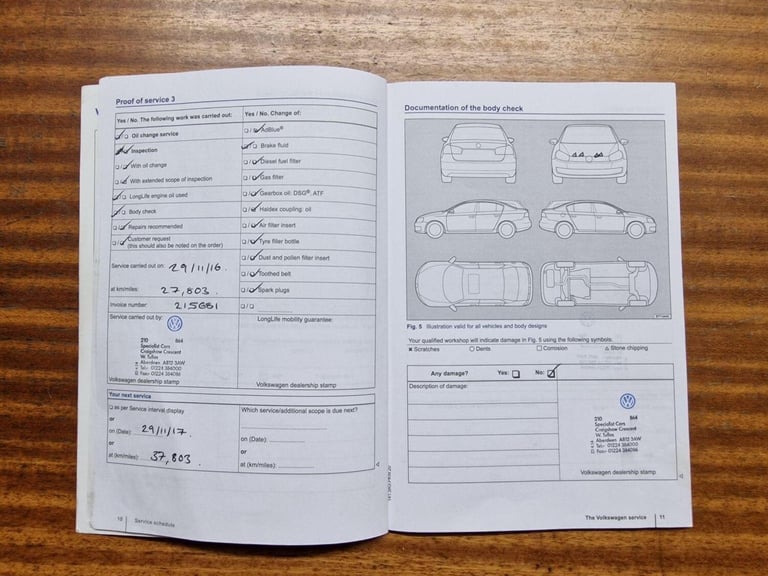 Proof of service 3
Yes / No. The following work was carried out:
Oil change service
Inspection
With oil change
With extended scope of inspection
LongLife engine oil used
Body check
Repairs recommended
Customer request
(this should also be noted on the order)
Service carried out on: 29/11/16.
at km/miles: 27,803.
Invoice number: 215681
Service carried out by:
210 864
Specialist Cars
Craigshaw Crescent
W. Tullos
Aberdeen AB12 3AW
Tel: 01224 384000
Fax: 01224 384086
Volkswagen dealership stamp
Yes / No. Change of:
AdBlue®
Brake fluid
Diesel fuel filter
Gas filter
Gearbox oil: DSG®, ATF
Haldex coupling: oil
Air filter insert
Tyre filler bottle
Dust and pollen filter insert
Toothed belt
Spark plugs
LongLife mobility guarantee:
Volkswagen dealership stamp
Your next service
as per Service interval display
or
on (Date): 29/11/17.
or
at (km/miles): 37,803.
Which service/additional scope is due next?
on (Date):
or
at (km/miles):
10 Service schedule
Documentation of the body check
Fig. 5 Illustration valid for all vehicles and body designs
Your qualified workshop will indicate damage in Fig. 5 using the following symbols.
× Scratches ○ Dents □ Corrosion △ Stone chipping
Any damage? Yes: No:
Description of damage:
210 864
Specialist Cars
Craigshaw Crescent
W. Tullos
Aberdeen AB12 3AW
Tel: 01224 384000
Fax: 01224 384086
Volkswagen dealership stamp
The Volkswagen service 11